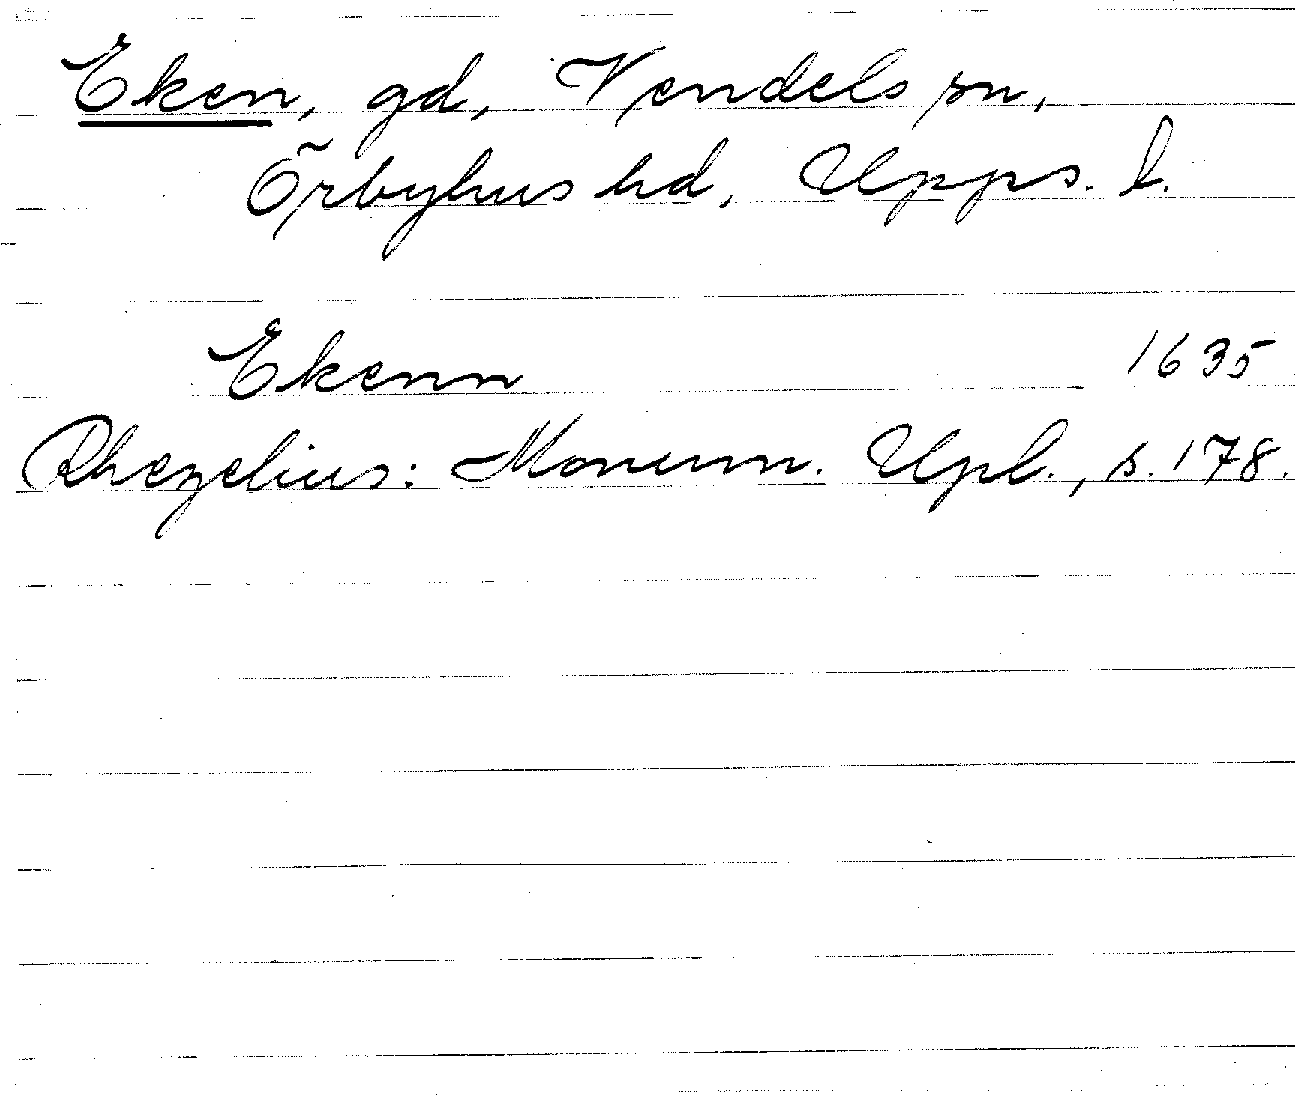 Eken, gd, Vendels sn,
Örbyhus hd, Upps. l.
Ekenn 1635
Rhezelius: Monum. Upl., s. 178.